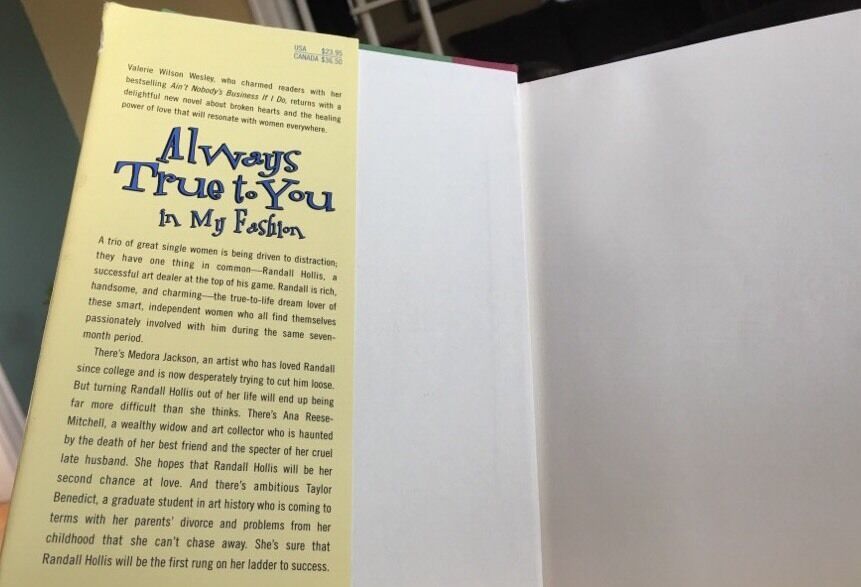 USA $23.95
CANADA $36.50
Valerie Wilson Wesley, who charmed readers with her
bestselling Ain't Nobody's Business If I Do, returns with a
delightful new novel about broken hearts and the healing
power of love that will resonate with women everywhere.
Always
True to You
in My Fashion
A trio of great single women is being driven to distraction;
they have one thing in common—Randall Hollis, a
successful art dealer at the top of his game. Randall is rich,
handsome, and charming—the true-to-life dream lover of
these smart, independent women who all find themselves
passionately involved with him during the same seven-
month period.
There's Medora Jackson, an artist who has loved Randall
since college and is now desperately trying to cut him loose.
But turning Randall Hollis out of her life will end up being
far more difficult than she thinks. There's Ana Reese-
Mitchell, a wealthy widow and art collector who is haunted
by the death of her best friend and the specter of her cruel
late husband. She hopes that Randall Hollis will be her
second chance at love. And there's ambitious Taylor
Benedict, a graduate student in art history who is coming to
terms with her parents' divorce and problems from her
childhood that she can't chase away. She's sure that
Randall Hollis will be the first rung on her ladder to success.